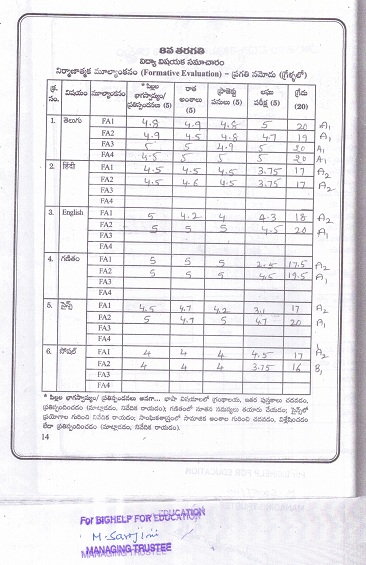 8వ తరగతి
విద్యా విషయక సమాచారం
నిర్మాణాత్మక మూల్యాంకనం (Formative Evaluation) - ప్రగతి నమోదు (గ్రేళ్ళలో)
క్ర. సం. విషయం మూల్యాంకనం * పిల్లల భాగస్వామ్యం/ ప్రతిస్పందనలు (5) రాత అంశాలు (5) ప్రాజెక్టు పనులు (5) లఘు పరీక్ష (5) గ్రేడు (20)
1. తెలుగు FA1 4.8 4.9 4.8 5 20 A1
FA2 4.9 4.5 4.8 4.7 19 A1
FA3 5 5 4.9 5 20 A1
FA4 4.5 5 5 5 20 A1
2. హిందీ FA1 4.5 4.5 4.5 3.75 17 A2
FA2 4.5 4.6 4.5 3.75 17 A2
FA3
FA4
3. English FA1 5 4.2 4 4.3 18 A2
FA2 5 5 5 4.5 20 A1
FA3
FA4
4. గణితం FA1 5 5 5 2.5 17.5 A2
FA2 5 5 5 4.5 19.5 A1
FA3
FA4
5. సైన్స్ FA1 4.5 4.7 4.2 3.1 17 A2
FA2 5 4.7 5 4.7 20 A1
FA3
FA4
6. సోషల్ FA1 4 4 4 4.5 17 A2
FA2 4 4 4 3.75 16 B1
FA3
FA4
* పిల్లల భాగస్వామ్యం/ ప్రతిస్పందనలు అనగా... భాషా విషయాలలో గ్రంథాలయ, ఇతర పుస్తకాలు చదవడం,
ప్రతిస్పందించడం (మాట్లాడడం, నివేదిక రాయడం); గణితంలో నూతన సమస్యలు తయారు చేయడం; సైన్స్‌లో
ప్రయోగాల గురించి నివేదిక రాయడం; సాంఘికశాస్త్రంలో సామాజిక అంశాల గురించి చదవడం, విశ్లేషించడం
లేదా ప్రతిస్పందించడం (మాట్లాడడం, నివేదిక రాయడం).
14
For BIGHELP FOR EDUCATION
M. Sarojini
MANAGING TRUSTEE